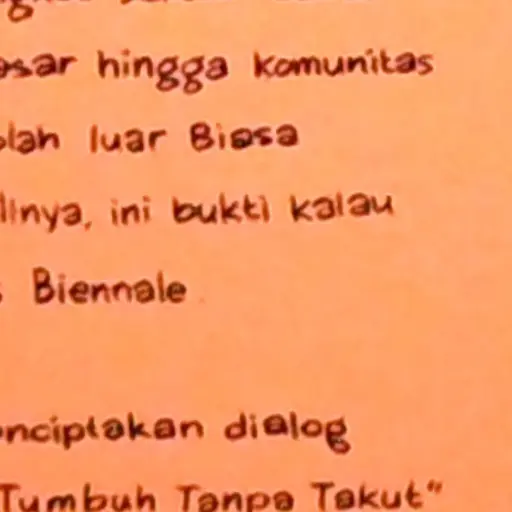 asar hingga komunitas
olah luar Biasa
linya, ini bukti kalau
s Biennale
nciptakan dialog
Tumbuh Tanpa Takut"